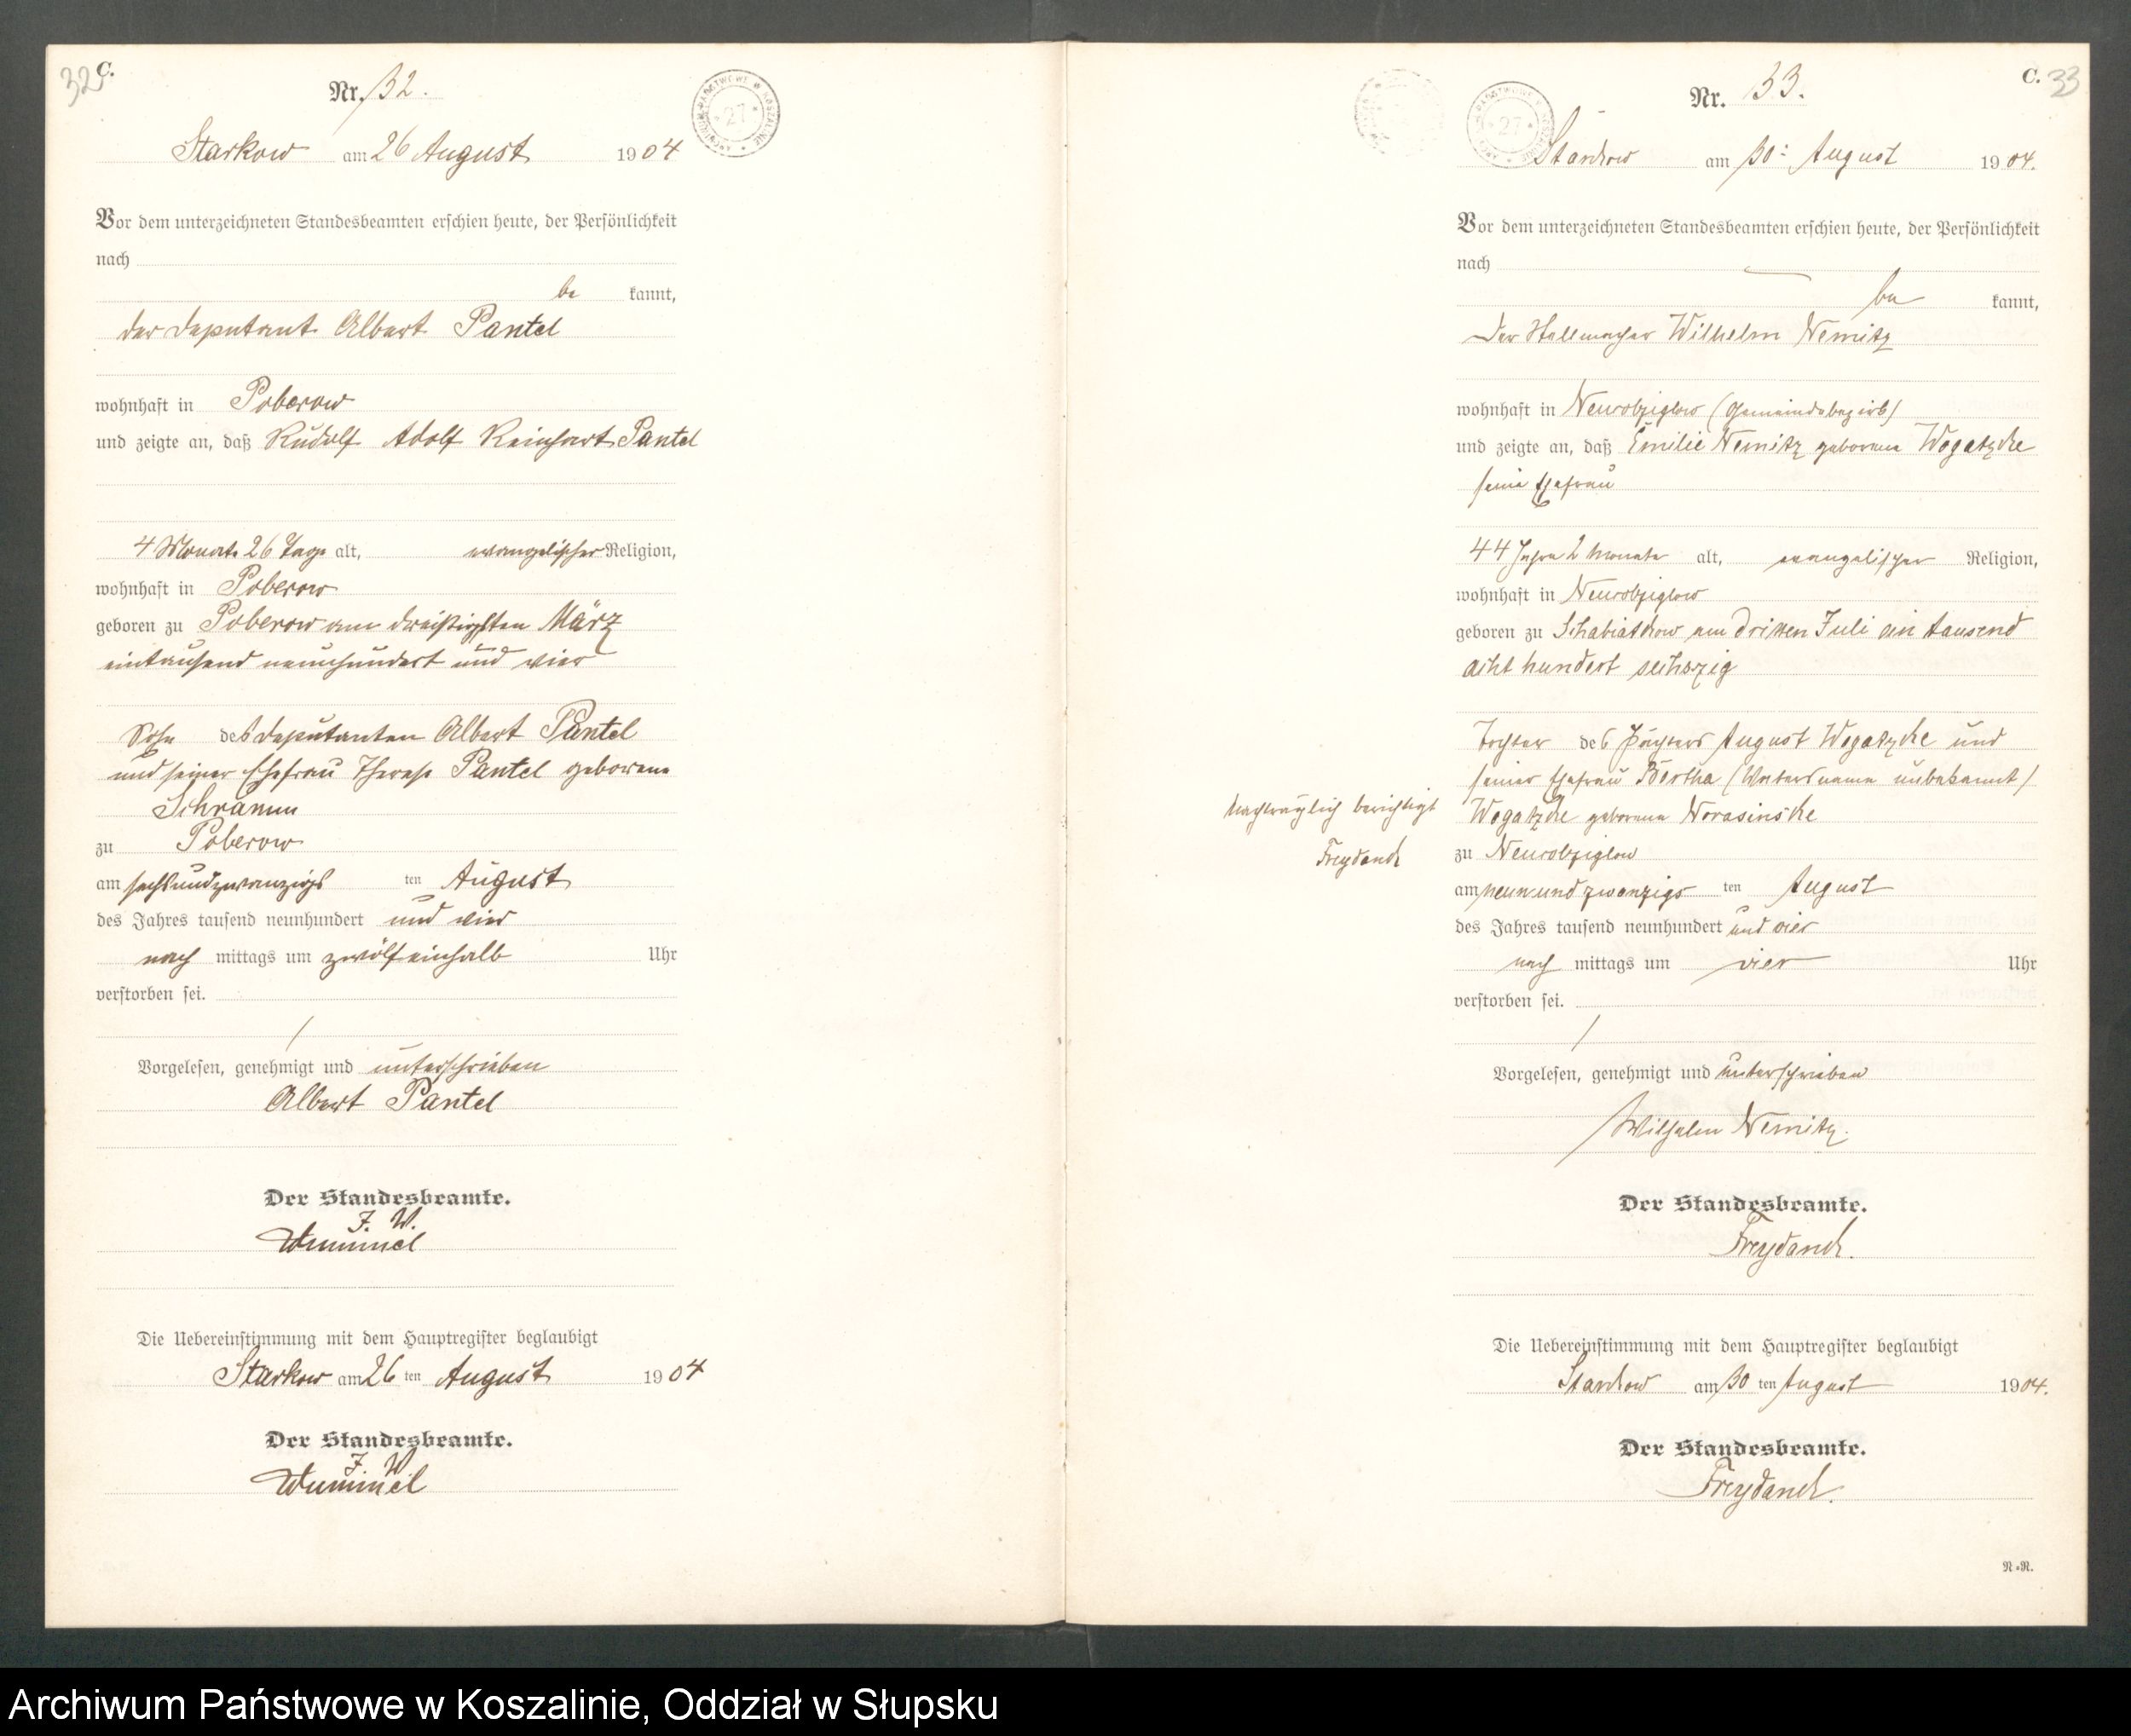 32
C.
Nr. 32.
ARCHIWUM PAŃSTWOWE W KOSZALINIE * 27 *
Starkow am 26 August 1904
Vor dem unterzeichneten Standesbeamten erschien heute, der Persönlichkeit
nach
be kannt,
der Deputant Albert Pantel
wohnhaft in Poberow
und zeigte an, daß Rudolf Adolf Reinhart Pantel
4 Monate 26 Tage alt, evangelischer Religion,
wohnhaft in Poberow
geboren zu Poberow am dreißigsten März
eintausend neunhundert und vier
Sohn des Deputanten Albert Pantel
und seiner Ehefrau Therese Pantel geborene
Schramm
zu Poberow
am sechsundzwanzigs ten August
des Jahres tausend neunhundert und vier
nach mittags um zwölfeinhalb Uhr
verstorben sei.
Vorgelesen, genehmigt und unterschrieben
Albert Pantel
Der Standesbeamte.
J. W.
Die Uebereinstimmung mit dem Hauptregister beglaubigt
Starkow am 26 ten August 1904
Der Standesbeamte.
J. W.
C. 33
Nr. 33.
27
Starkow am 30: August 1904.
Vor dem unterzeichneten Standesbeamten erschien heute, der Persönlichkeit
nach
be kannt,
Der Stellmacher Wilhelm Nemitz
wohnhaft in Neurobziglow (Gemeindebezirk)
und zeigte an, daß Emilie Nemitz geborene Wogatzke
seine Ehefrau
44 Jahre 2 Monate alt, evangelischer Religion,
wohnhaft in Neurobziglow
geboren zu Schabiatkow am dritten Juli ein tausend
acht hundert sechszig
Tochter des Pächters August Wogatzke und
seiner Ehefrau Bertha (Vatersname unbekannt)
Nachträglich berichtigt
Freydanck
Wogatzke geborene Norasinske
zu Neurobziglow
am neunundzwanzigs ten August
des Jahres tausend neunhundert und vier
nach mittags um vier Uhr
verstorben sei.
Vorgelesen, genehmigt und unterschrieben
Wilhelm Nemitz.
Der Standesbeamte.
Freydanck.
Die Uebereinstimmung mit dem Hauptregister beglaubigt
Starkow am 30 ten August 1904.
Der Standesbeamte.
Freydanck.
N=R.
Archiwum Państwowe w Koszalinie, Oddział w Słupsku